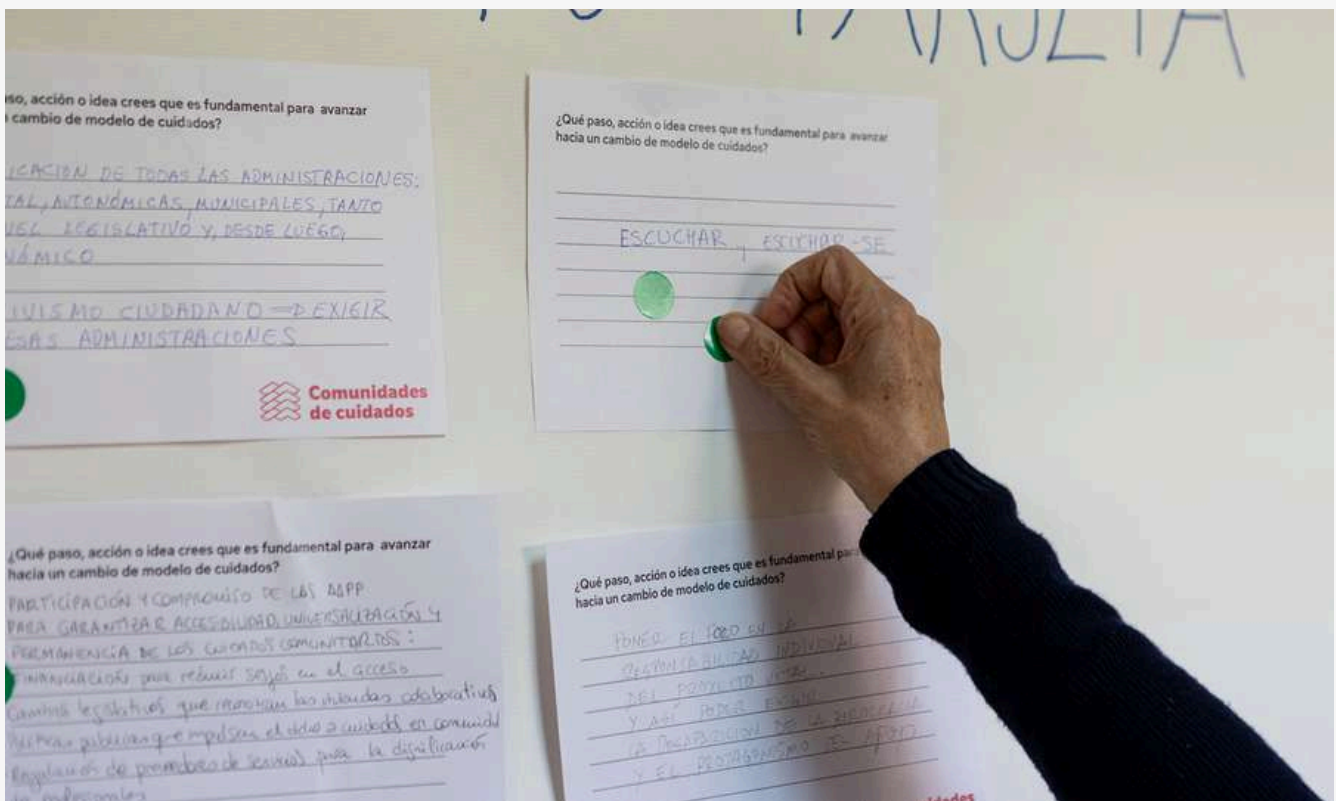 TARJETA
aso, acción o idea crees que es fundamental para avanzar
cambio de modelo de cuidados?
ICACIÓN DE TODAS LAS ADMINISTRACIONES:
TAL, AUTONÓMICAS, MUNICIPALES, TANTO
VEL LEGISLATIVO Y, DESDE LUEGO,
NÓMICO
IVISMO CIUDADANO ⇒ EXIGIR
ESAS ADMINISTRACIONES
Comunidades
de cuidados
¿Qué paso, acción o idea crees que es fundamental para avanzar
hacia un cambio de modelo de cuidados?
ESCUCHAR, ESCUCHAR-SE
¿Qué paso, acción o idea crees que es fundamental para avanzar
hacia un cambio de modelo de cuidados?
PARTICIPACIÓN Y COMPROMISO DE LAS AAPP
PARA GARANTIZAR ACCESIBILIDAD, UNIVERSALIZACIÓN Y
PERMANENCIA DE LOS CUIDADOS COMUNITARIOS:
FINANCIACIÓN para reducir en el acceso
Cambios legislativos que las viviendas colaborativas
públicas que impulsen el a cuidados en comunidad
Regulación de de servicios para la dignificación
profesionales
¿Qué paso, acción o idea crees que es fundamental para
hacia un cambio de modelo de cuidados?
PONER EL FOCO EN LA
RESPONSABILIDAD INDIVIDUAL
DEL PROYECTO VITAL
Y ASÍ PODER EXIGIR
LA DE LA
Y EL PROTAGONISMO DEL APOYO
idades